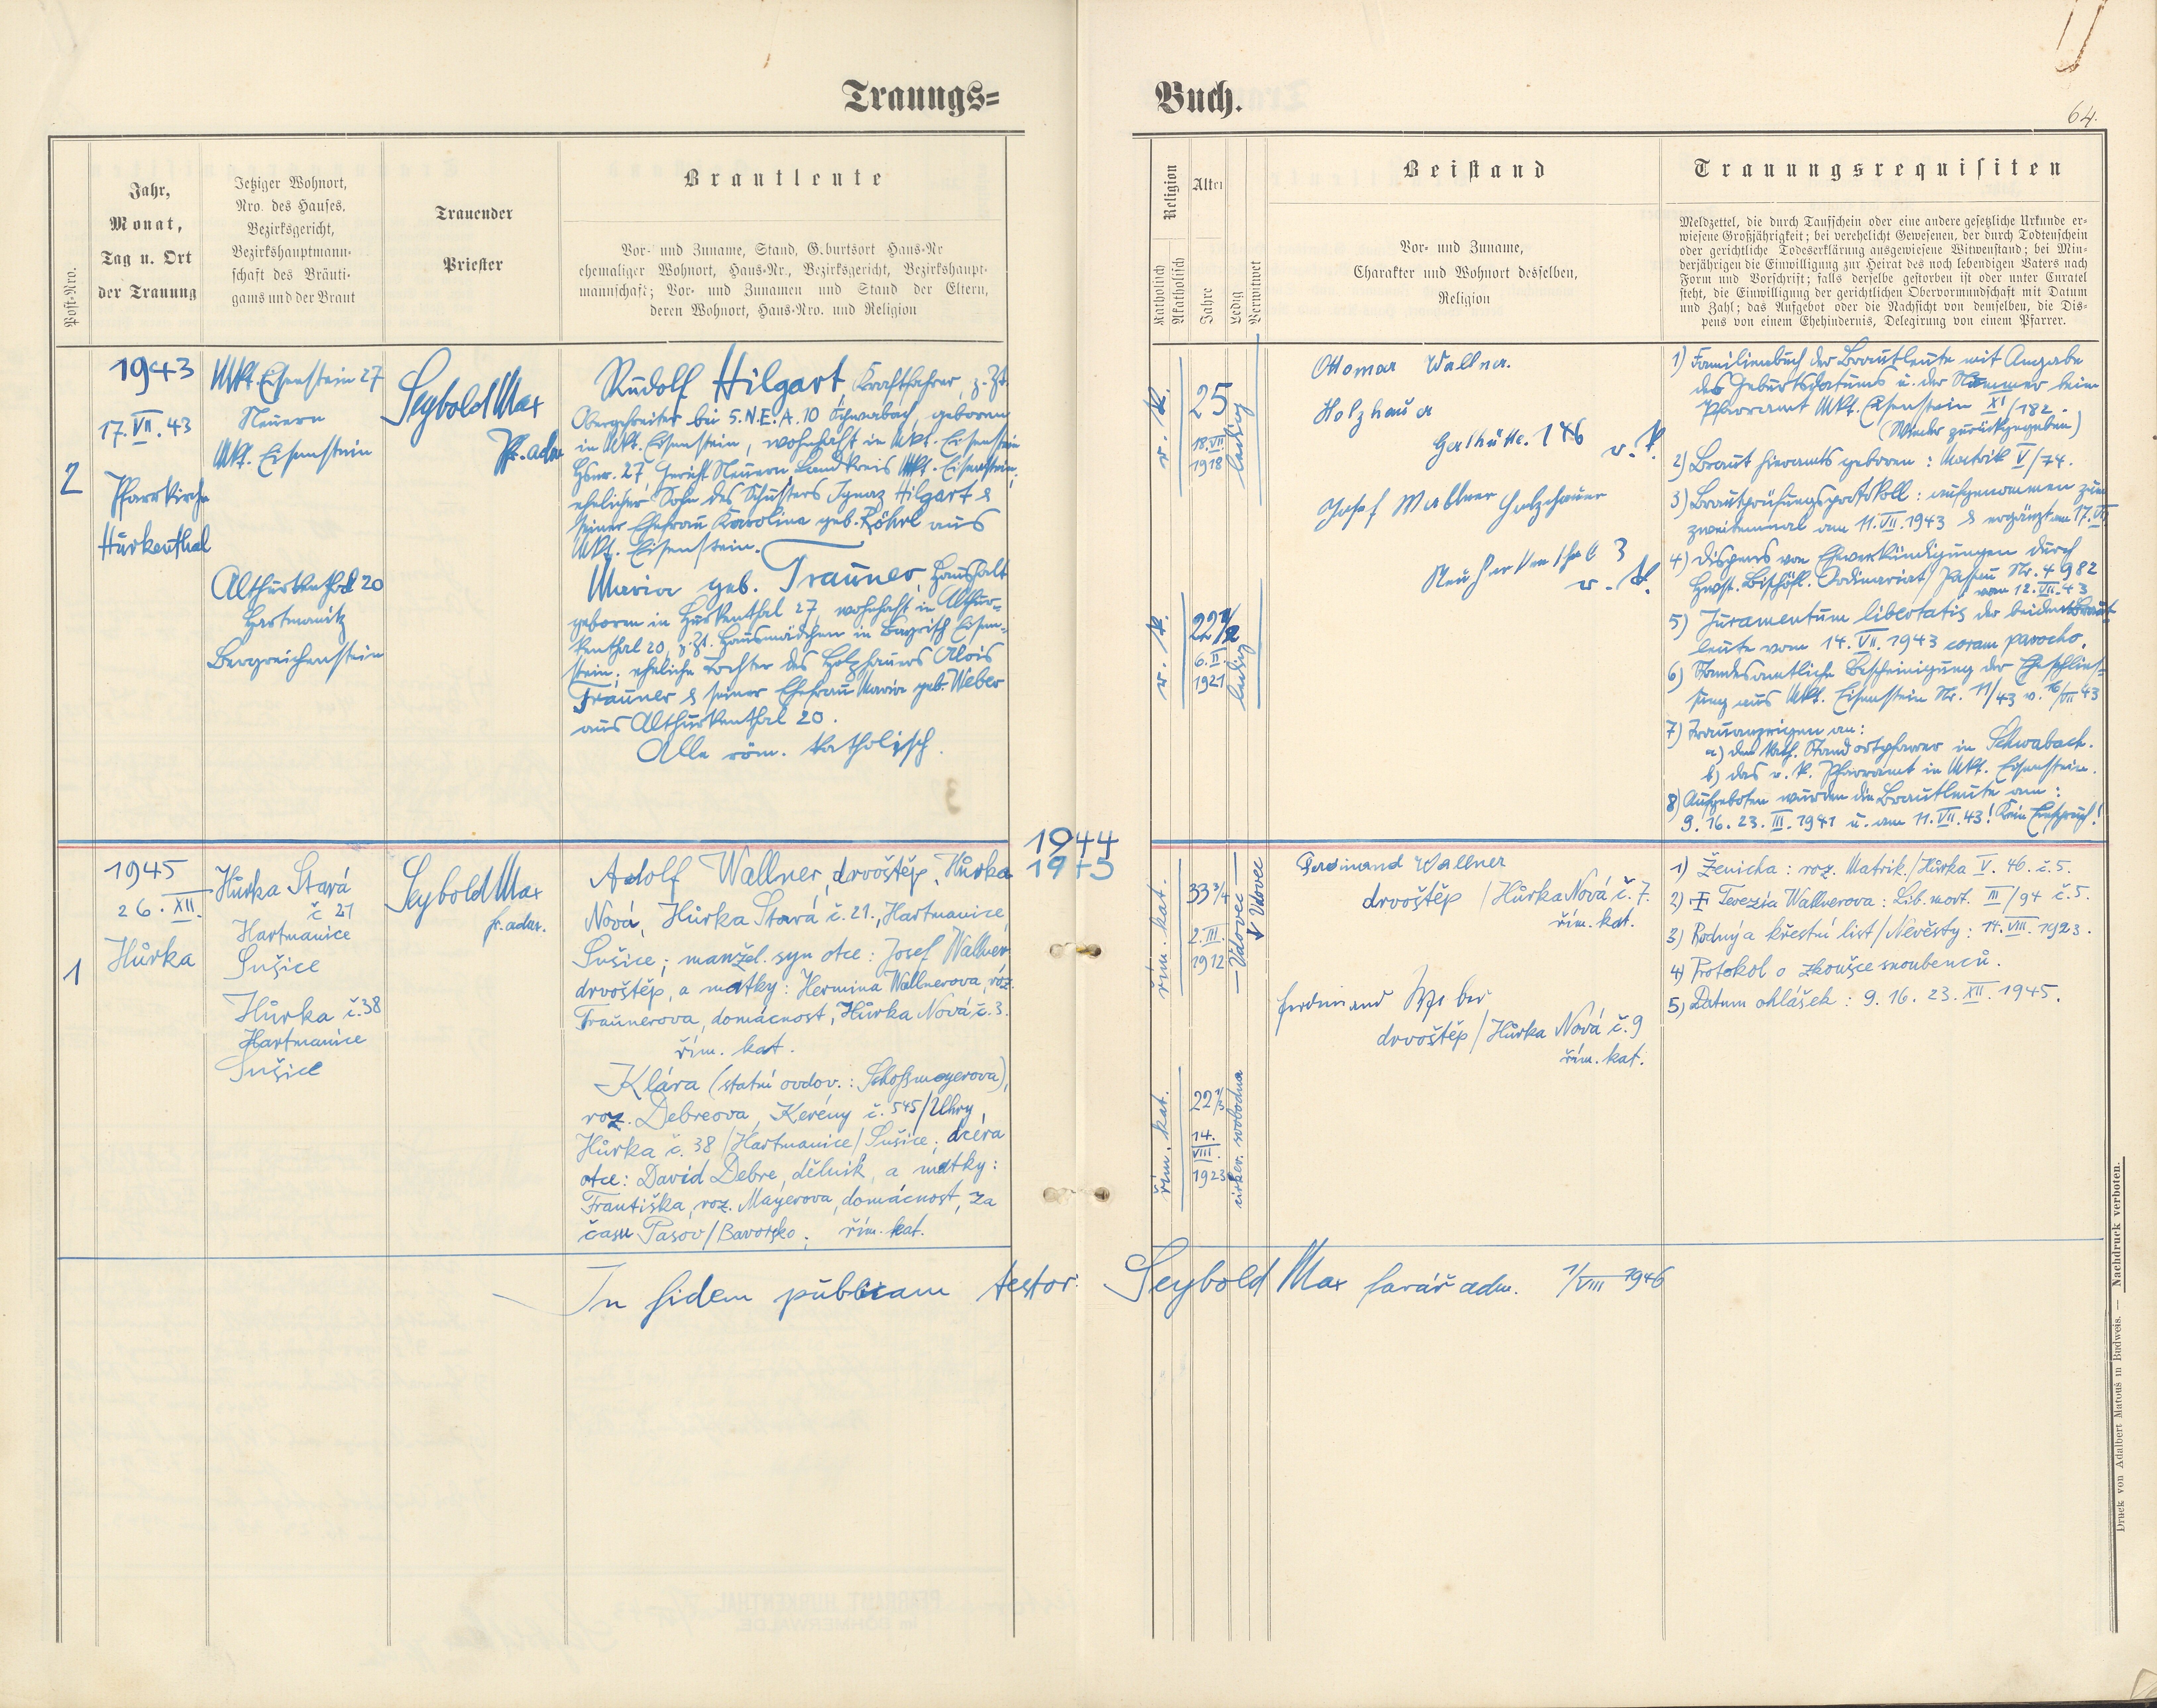 Trauungs=
Buch.
64.
Post-Nro.
Jahr,
Monat,
Tag u. Ort
der Trauung
Jetziger Wohnort,
Nro. des Hauses,
Bezirksgericht,
Bezirkshauptmann-
schaft des Bräuti-
gams und der Braut
Trauender
Priester
Brautleute
Vor- und Zuname, Stand, G.burtsort Haus-Nr
ehemaliger Wohnort, Haus-Nr., Bezirksgericht, Bezirkshaupt-
mannschaft; Vor- und Zunamen und Stand der Eltern,
deren Wohnort, Haus-Nro. und Religion
Religion
Katholisch
Akatholisch
Alter
Jahre
Ledig
Verwitwet
Beistand
Vor- und Zuname,
Charakter und Wohnort desselben,
Religion
Trauungsrequisiten
Meldzettel, die durch Taufschein oder eine andere gesetzliche Urkunde er-
wiesene Großjährigkeit; bei verehelicht Gewesenen, der durch Todtenschein
oder gerichtliche Todeserklärung ausgewiesene Witwenstand; bei Min-
derjährigen die Einwilligung zur Heirat des noch lebendigen Vaters nach
Form und Vorschrift; falls derselbe gestorben ist oder unter Curatel
steht, die Einwilligung der gerichtlichen Obervormundschaft mit Datum
und Zahl; das Aufgebot oder die Nachsicht von demselben, die Dis-
pens von einem Ehehindernis, Delegirung von einem Pfarrer.
2
1943
17. VII. 43
Pfarrkirche
Hurkenthal
Mkt. Eisenstein 27
Neuern
Mkt. Eisenstein
Althurkenthal 20
Hartmanitz
Bergreichenstein
Seybold Max
Pf. adm
Rudolf Hilgart, Kraftfahrer, z. Zt.
Obergefreiter bei S.N.E.A. 10 Schwabach, geboren
in Mkt. Eisenstein, wohnhaft in Mkt. Eisenstein
Hsnr. 27, Gericht Neuern, Landkreis Mkt. Eisenstein;
ehelicher Sohn des Schusters Ignaz Hilgart &
seiner Ehefrau Karolina geb. Röhrl aus
Mkt. Eisenstein.
Maria geb. Trauner, Haushalt
geboren in Hurkenthal 27, wohnhaft in Althur-
kenthal 20, z. Zt. Hausmädchen in Bayrisch Eisen-
stein; eheliche Tochter des Holzhauers Alois
Trauner & seiner Ehefrau Maria geb. Weber
aus Althurkenthal 20.
Alle röm. katholisch.
r. k.
25
18. VII
1918
ledig
r. k.
22 1/2
6. II
1921
ledig
Ottomar Wallner.
Holzhauer
Gerlhütte. 146
r. k.
Josef Wallner Holzhauer
Neuhurkenthal 3
r. k.
1) Familienbuch der Brautleute mit Angabe
des Geburtsdatums u. der Nummer beim
Pfarramt Mkt. Eisenstein XI/182.
(Wieder zurückgegeben)
2) Braut hieramts geboren: Matrik V/74.
3) Brautprüfungsprotokoll: aufgenommen zum
zweitenmal am 11. VII. 1943 & ergänzt am 17. VII
4) Dispens von Eheverkündigungen durch
Hwst. Bischöfl. Ordinariat Passau Nr. 4982
vom 12. VII. 43
5) Juramentum libertatis der beiden Braut-
leute vom 14. VII. 1943 coram parocho.
6) Standesamtliche Bescheinigung der Eheschlies-
sung aus Mkt. Eisenstein Nr. 11/43 v. 16/VII 43
7) Trauanzeigen an:
a) den kath. Standortpfarrer in Schwabach.
b) das r. k. Pfarramt in Mkt. Eisenstein.
8) Aufgeboten wurden die Brautleute am:
9. 16. 23. III. 1941 u. am 11. VII. 43! Kein Einspruch!
1944
1945
1
1945
26. XII.
Hůrka
Hůrka Stará
č 21
Hartmanice
Sušice
Hůrka č. 38
Hartmanice
Sušice
Seybold Max
f. adm.
Adolf Wallner, drvoštěp, Hůrka
Nová, Hůrka Stará č. 21., Hartmanice,
Sušice; manžel. syn otce: Josef Wallner,
drvoštěp, a matky: Hermina Wallnerova, roz.
Traunerova, domácnost, Hůrka Nová č. 3.
řím. kat.
Klára (statní ovdov.: Schossmayerova),
roz. Debreová, Kerény č. 545/Uhry,
Hůrka č. 38/Hartmanice/Sušice; dcéra
otce: David Debre, dělník, a matky:
Františka, roz. Mayerova, domácnost, za
času Pasov/Bavorsko; řím. kat.
řím. kat.
33 3/4
2. III.
1912
— Vdovec —
↓ Vdovec
řím. kat.
22 1/3
14.
VIII.
1923
cirkev. svobodna
Ferdinand Wallner
drvoštěp / Hůrka Nová č. 7.
řím. kat.
Ferdinand Weber
drvoštěp / Hůrka Nová č. 9
řím. kat.
1) Ženicha: roz. Matrik./Hůrka V. 46. č. 5.
2) Terezia Wallnerova: Lib. mort. III/94 č. 5.
3) Rodný a křestní list/Nevěsty: 14. VIII. 1923.
4) Protokol o zkoušce snoubenců.
5) Datum ohlášek: 9. 16. 23. XII. 1945.
In fidem publicam testor: Seybold Max farář adm. 1/VIII 1946
Druck von Adalbert Matouš in Budweis. — Nachdruck verboten.